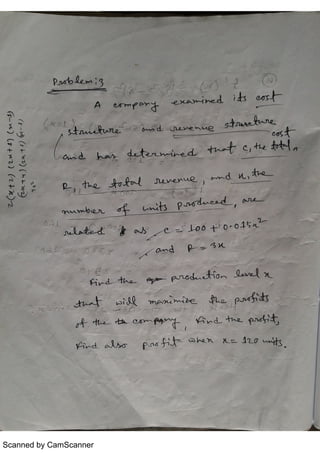 Problem:3
A company examined its cost
structure and revenue structure
and has determined that C, the total cost,
R, the total revenue, and x, the
number of units produced, are
related as C = 100 + 0.015x²
and R = 3x
Find the production level x
that will maximize the profits
of the company, Find the profit,
Find also profit when x = 120 units.
Scanned by CamScanner